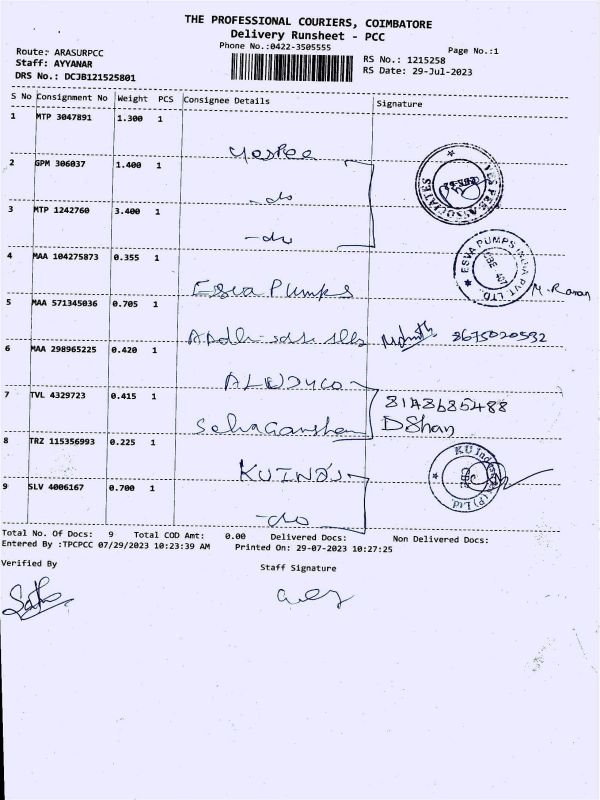 THE PROFESSIONAL COURIERS, COIMBATORE
Delivery Runsheet - PCC
Phone No.:0422-3505555
Page No.:1
Route: ARASURPCC
Staff: AYYANAR
DRS No.: DCJB121525801
RS No.: 1215258
RS Date: 29-Jul-2023
S No Consignment No Weight PCS Consignee Details Signature
1 MTP 3047891 1.300 1
2 GPM 306037 1.400 1
-do
3 MTP 1242760 3.400 1
-do
4 MAA 104275873 0.355 1
Esva Pumps
ESVA PUMPS INDIA PVT. LTD.
5 MAA 571345036 0.705 1
8675020532
6 MAA 298965225 0.420 1
7 TVL 4329723 0.415 1
8148685488
DShan
8 TRZ 115356993 0.225 1
KU INDS
KU Industries (P) Ltd.
9 SLV 4006167 0.700 1
-do
Total No. Of Docs: 9 Total COD Amt: 0.00 Delivered Docs: Non Delivered Docs:
Entered By :TPCPCC 07/29/2023 10:23:39 AM Printed On: 29-07-2023 10:27:25
Verified By
Staff Signature